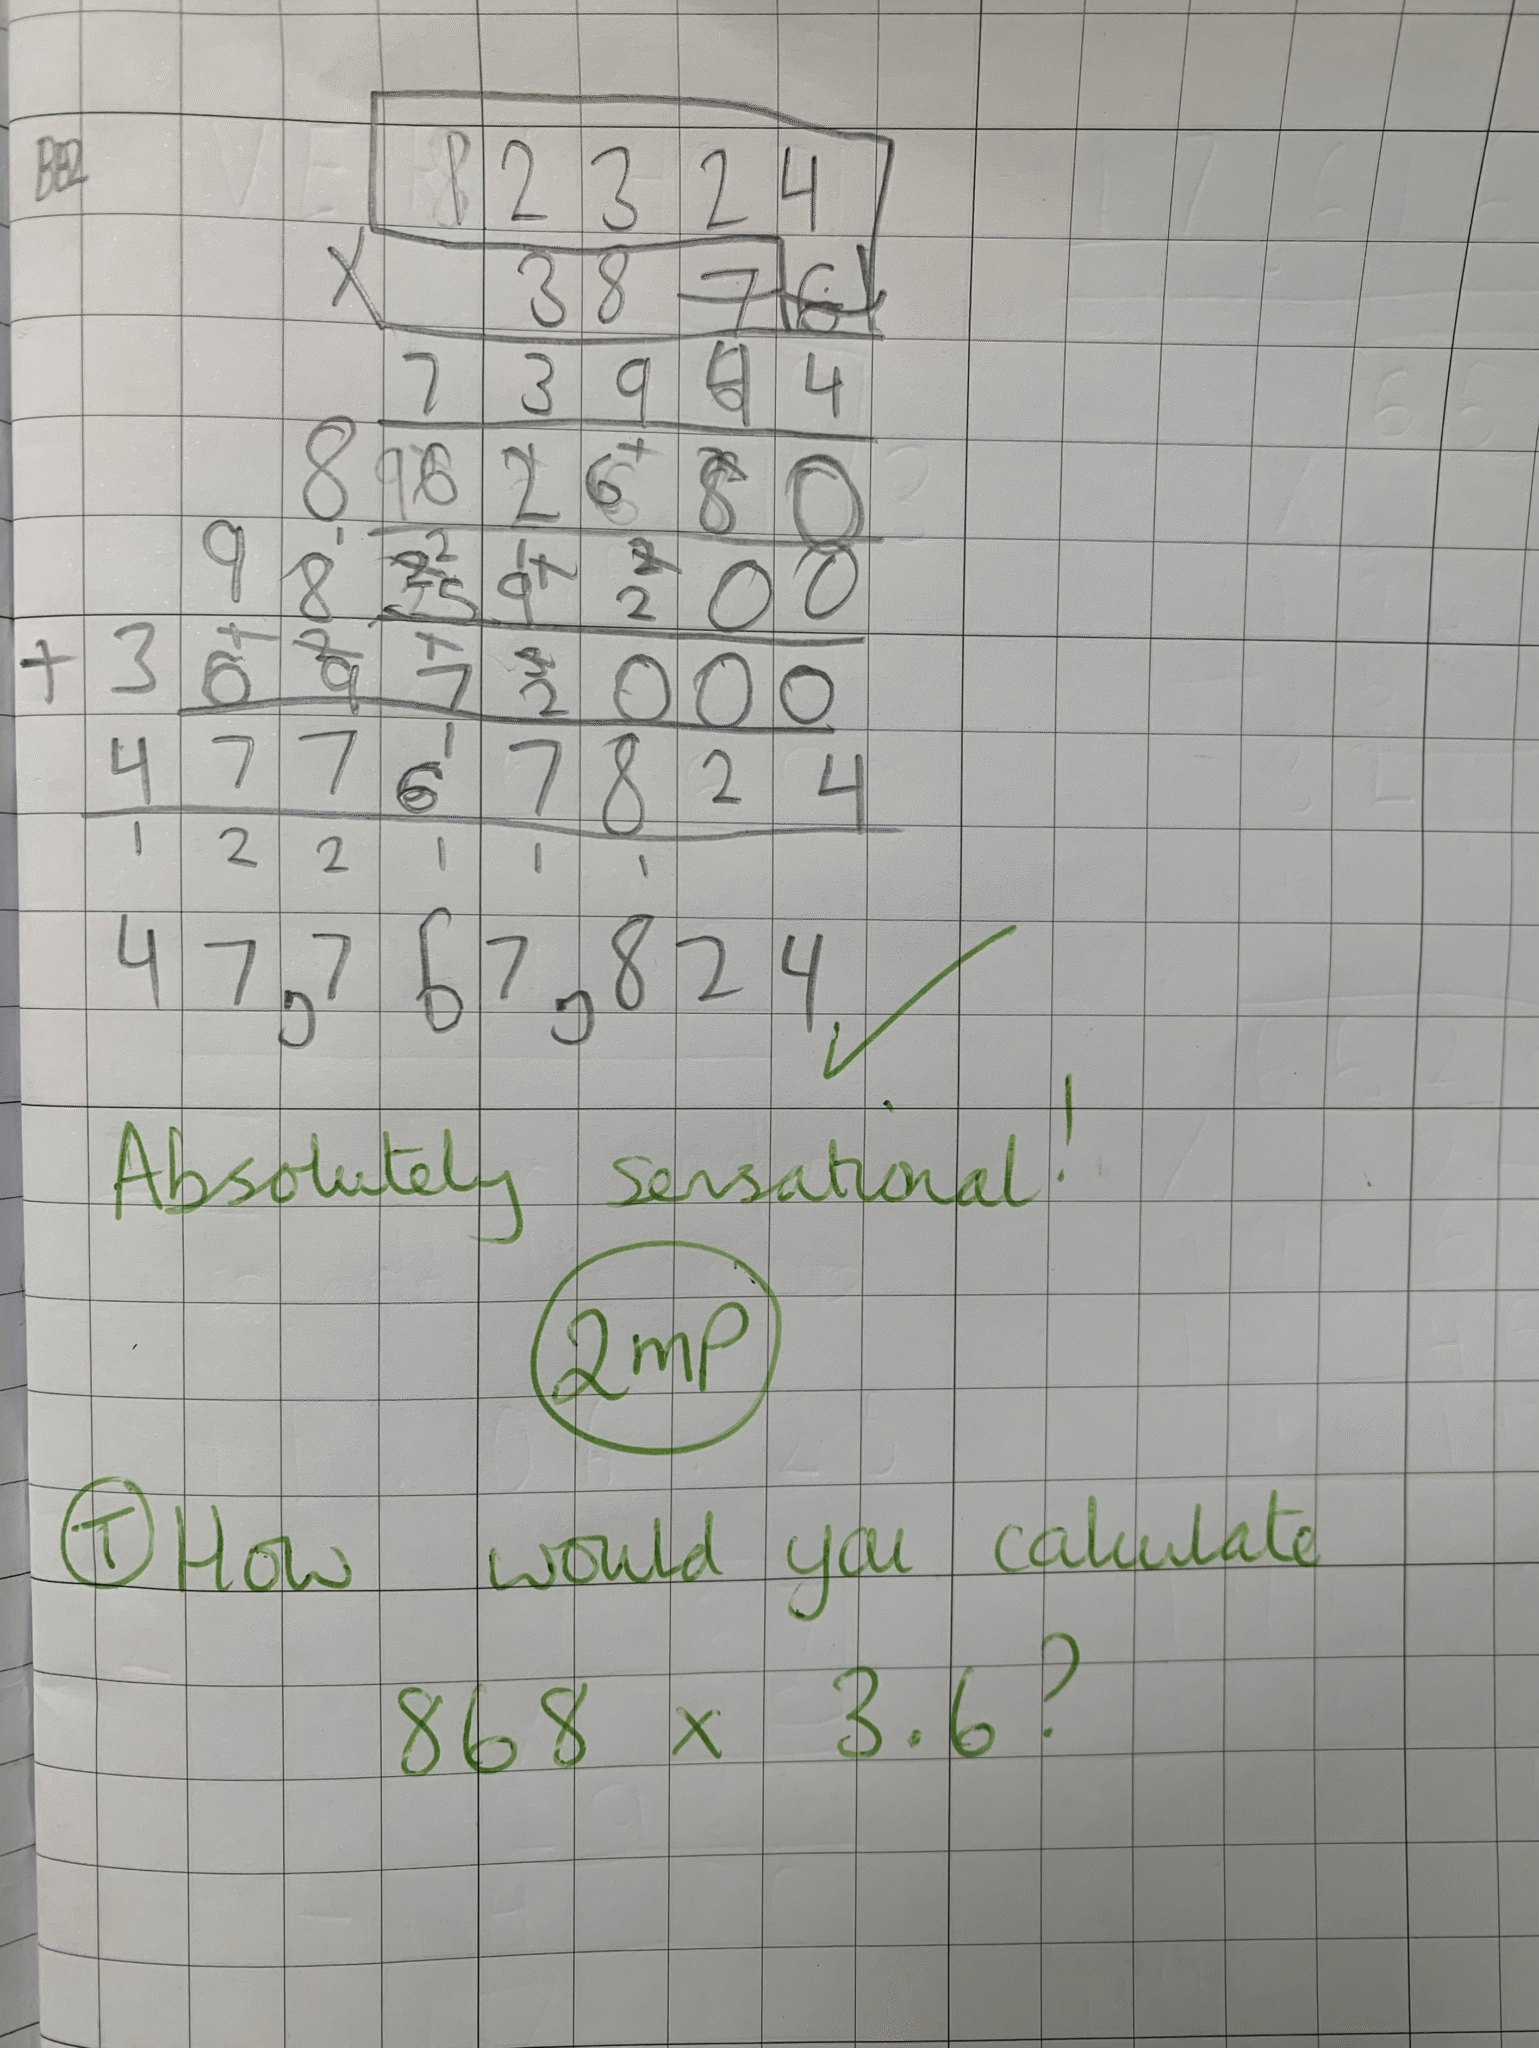 1 2 3 2 4
X 3 8 7 6
7 3 9 4 4
8 6 2 6 8 0
9 8 5 9 2 0 0
+ 3 6 9 7 2 0 0 0
4 7 7 6 7 8 2 4
1 2 2 1 1 1
4 7 , 7 6 7 , 8 2 4
Absolutely sensational!
2mP
T How would you calculate
868 x 3.6?